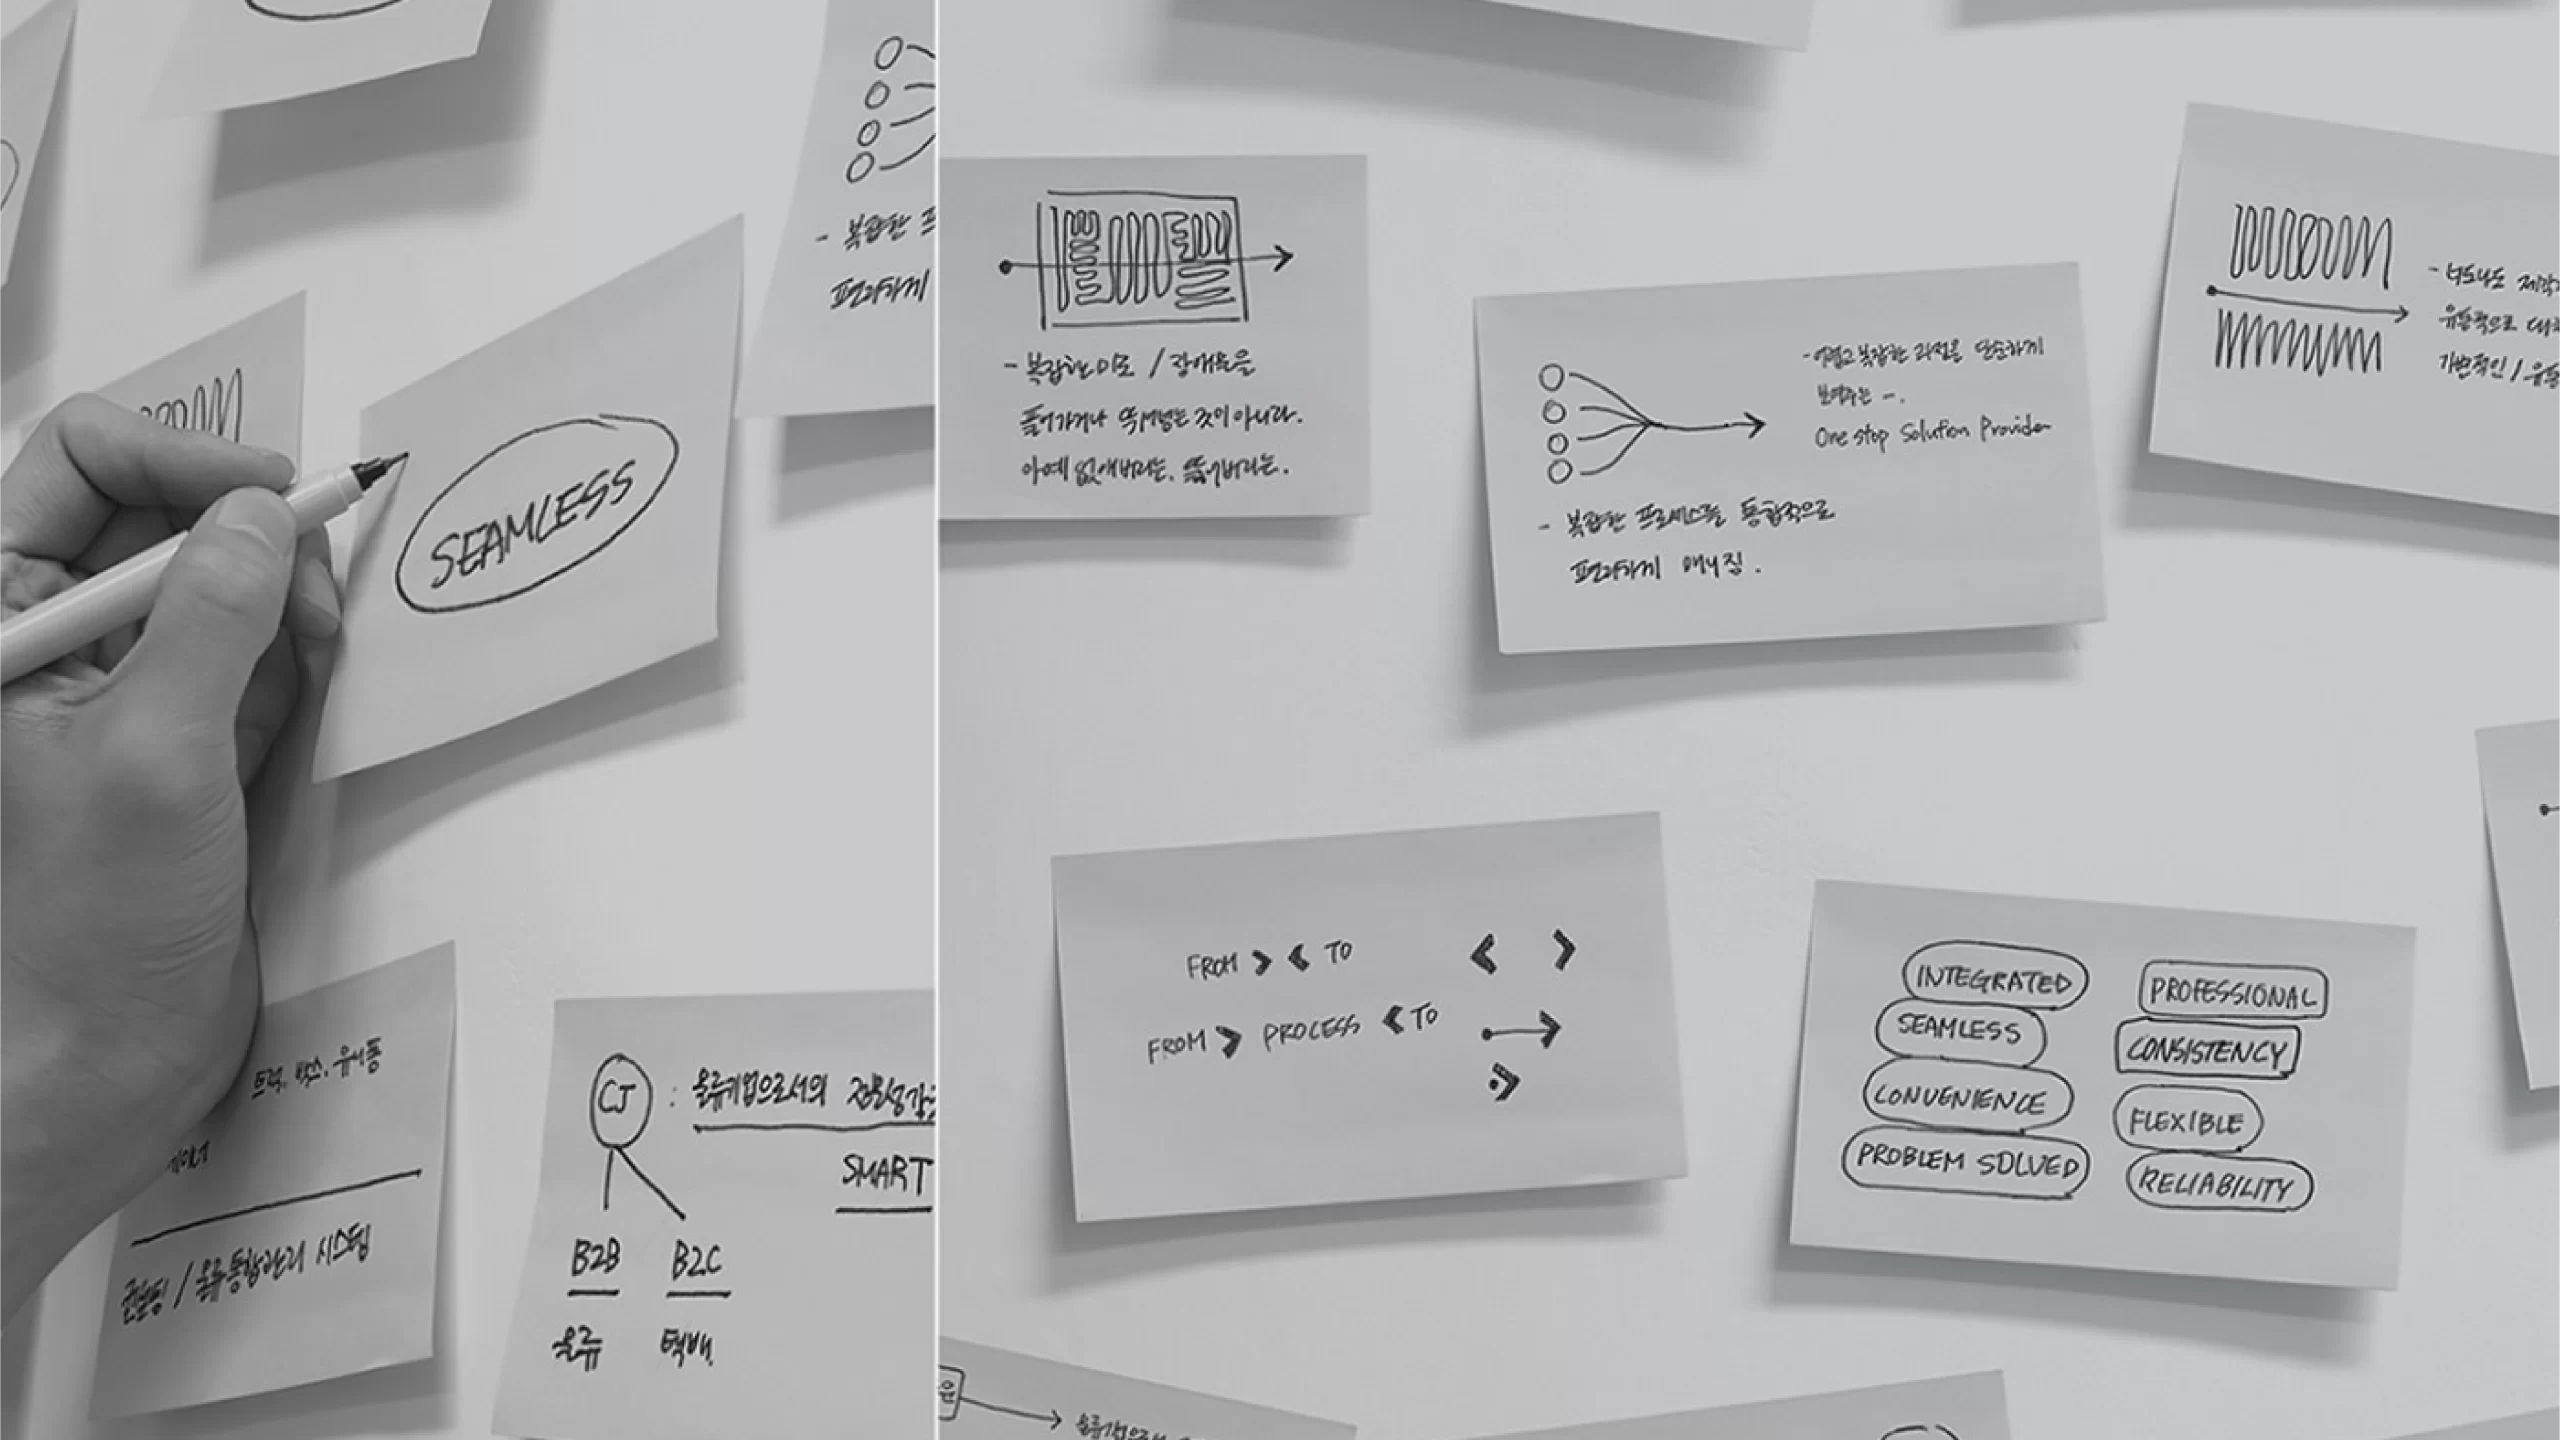 - 복잡한 프
편리하게
SEAMLESS
트럭, 박스, 유니폼
컨설팅 / 물류통합관리 시스템
CJ : 물류기업으로서의 전문성
SMART
B2B B2C
물류 택배
- 복잡한 미로 / 장애물을
돌아가거나 뛰어넘는 것이 아니라.
아예 없애버리는, 뚫어버리는.
- 어렵고 복잡한 과정을 단순하게
보여주는 -.
One stop Solution Provider
- 복잡한 프로세스를 통합적으로
편리하게 매니징.
- 너도나도
유동적으로
가변적인 / 유동
FROM > < TO
< >
FROM > PROCESS < TO
INTEGRATED
SEAMLESS
CONVENIENCE
PROBLEM SOLVED
PROFESSIONAL
CONSISTENCY
FLEXIBLE
RELIABILITY